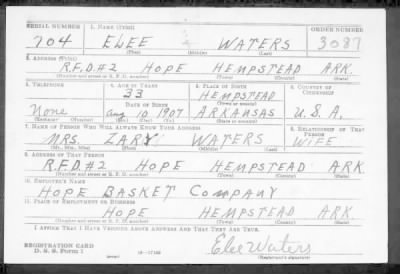 SERIAL NUMBER 1. NAME (Print) ORDER NUMBER
704 ELEE WATERS 3087
(First) (Middle) (Last)
2. ADDRESS (Print)
R.F.D#2 HOPE HEMPSTEAD ARK.
(Number and street or R. F. D. number) (Town) (County) (State)
3. TELEPHONE 4. AGE IN YEARS 5. PLACE OF BIRTH 6. COUNTRY OF CITIZENSHIP
33 HEMPSTEAD
DATE OF BIRTH (Town or county)
None Aug 10 1907 ARKANSAS U.S.A.
(Exchange) (Number) (Mo.) (Day) (Yr.) (State or country)
7. NAME OF PERSON WHO WILL ALWAYS KNOW YOUR ADDRESS 8. RELATIONSHIP OF THAT PERSON
MRS. WATERS WIFE
(Mr., Mrs., Miss) (First) (Middle) (Last)
9. ADDRESS OF THAT PERSON
R.F.D#2 HOPE HEMPSTEAD ARK
(Number and street or R. F. D. number) (Town) (County) (State)
10. EMPLOYER'S NAME
HOPE BASKET COMPANY
11. PLACE OF EMPLOYMENT OR BUSINESS
HOPE HEMPSTEAD ARK
(Number and street or R. F. D. number) (Town) (County) (State)
I AFFIRM THAT I HAVE VERIFIED ABOVE ANSWERS AND THAT THEY ARE TRUE.
REGISTRATION CARD
D. S. S. Form 1 Elee Waters
(Registrant's signature)